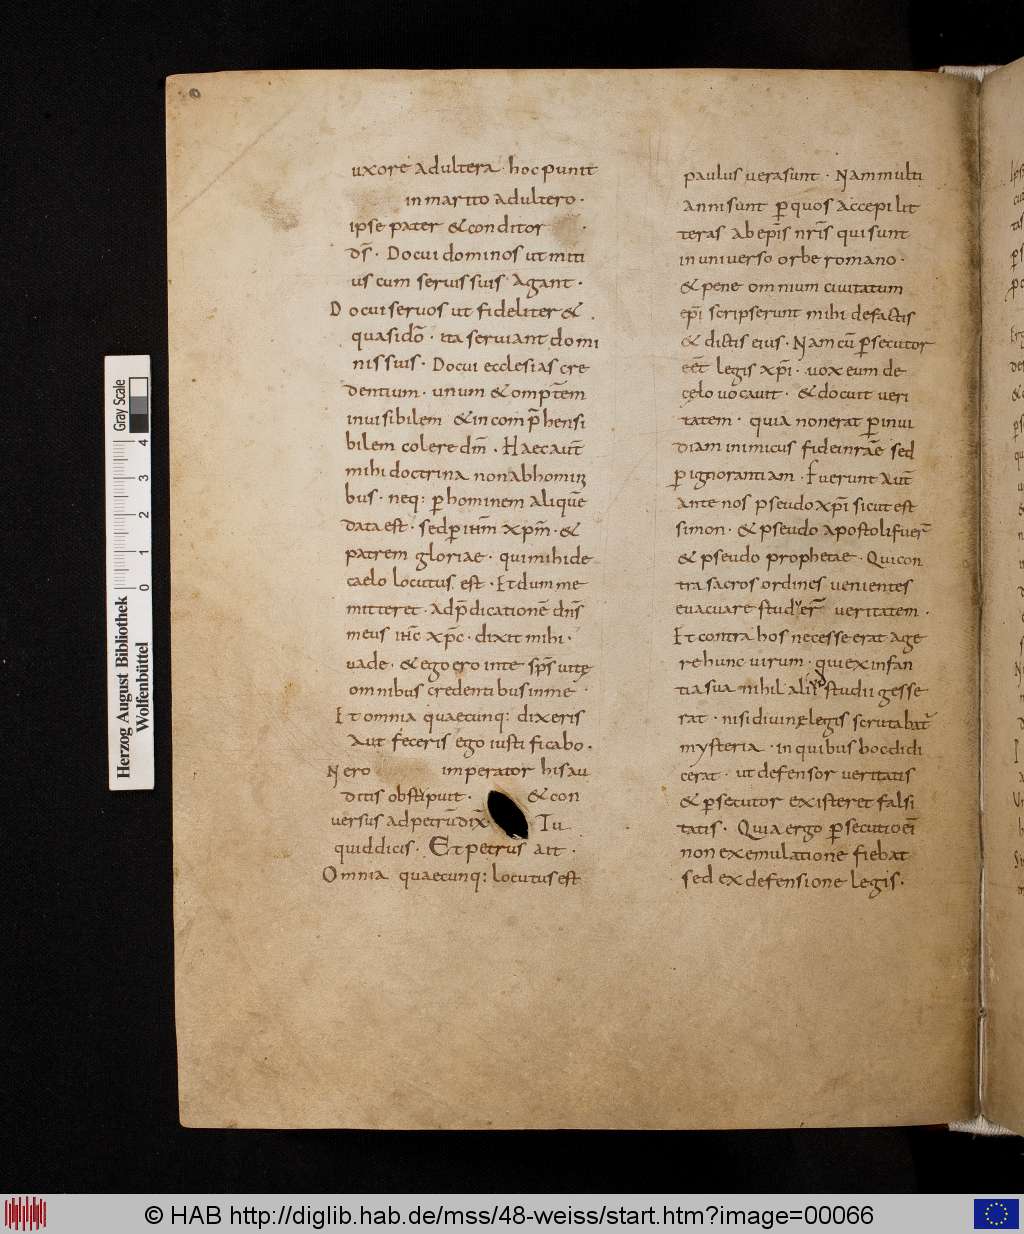 uxore adultera hoc punit
in marito adultero ·
ipse pater & conditor
ds̄ · Docui dominos ut miti
us cum servis suis agant ·
Docui servos ut fideliter &
quasi dō · ita serviant domi
nis suis · Docui ecclesias cre
dentium · unum & omp̄tem
invisibilem & incomp̄hensi
bilem colere dm̄ · Haec aut̄
mihi doctrina non ab homin
bus · neq: p̄ hominem aliquē
data est · sed p̄ ihm̄ xpm̄ · &
patrem gloriae · qui mihi de
caelo locutus est · Et dum me
mitteret · ad p̄dicationē dn̄s
meus ihc̄ xp̄c · dixit mihi ·
vade · & ego ero in te sp̄s vitę
omnibus credentibus in me ·
Et omnia quaecunq: dixeris
aut feceris ego iustificabo ·
Nero imperator his au
ditis obstipuit · & con
versus ad petrū dix̄ Tu
quid dicis · Et petrus ait ·
Omnia quaecunq: locutus est
paulus vera sunt · Nam multi
anni sunt p̄ quos accepi lit
teras ab ep̄is nr̄is qui sunt
in universo orbe romano ·
& pene omnium civitatum
ep̄i scripserunt mihi de factis
& dictis eius · Nam cū p̄secutor
eēt legis xp̄i · vox eum de
cęlo vocavit · & docuit veri
tatem · quia non erat p̄ invi
diam inimicus fidei nrāe sed
p̄ ignorantiam · Fuerunt aut̄
ante nos pseudo xp̄i sicut est
simon · & pseudo apostoli fuer̄
& pseudo prophetae · Qui con
tra sacros ordines venientes
evacuare studuer̄ veritatem ·
Et contra hos necesse erat age
re hunc virum · qui ex infan
tia sua nihil alid studii gesse
rat · nisi divinę legis scrutabat̄
mysteria · in quibus hoc didi
cerat · ut defensor veritatis
& p̄secutor existeret falsi
tatis · Quia ergo p̄secutio eī
non ex emulatione fiebat
sed ex defensione legis ·
Herzog August Bibliothek
Wolfenbüttel
0 1 2 3 4
Gray Scale
© HAB http://diglib.hab.de/mss/48-weiss/start.htm?image=00066